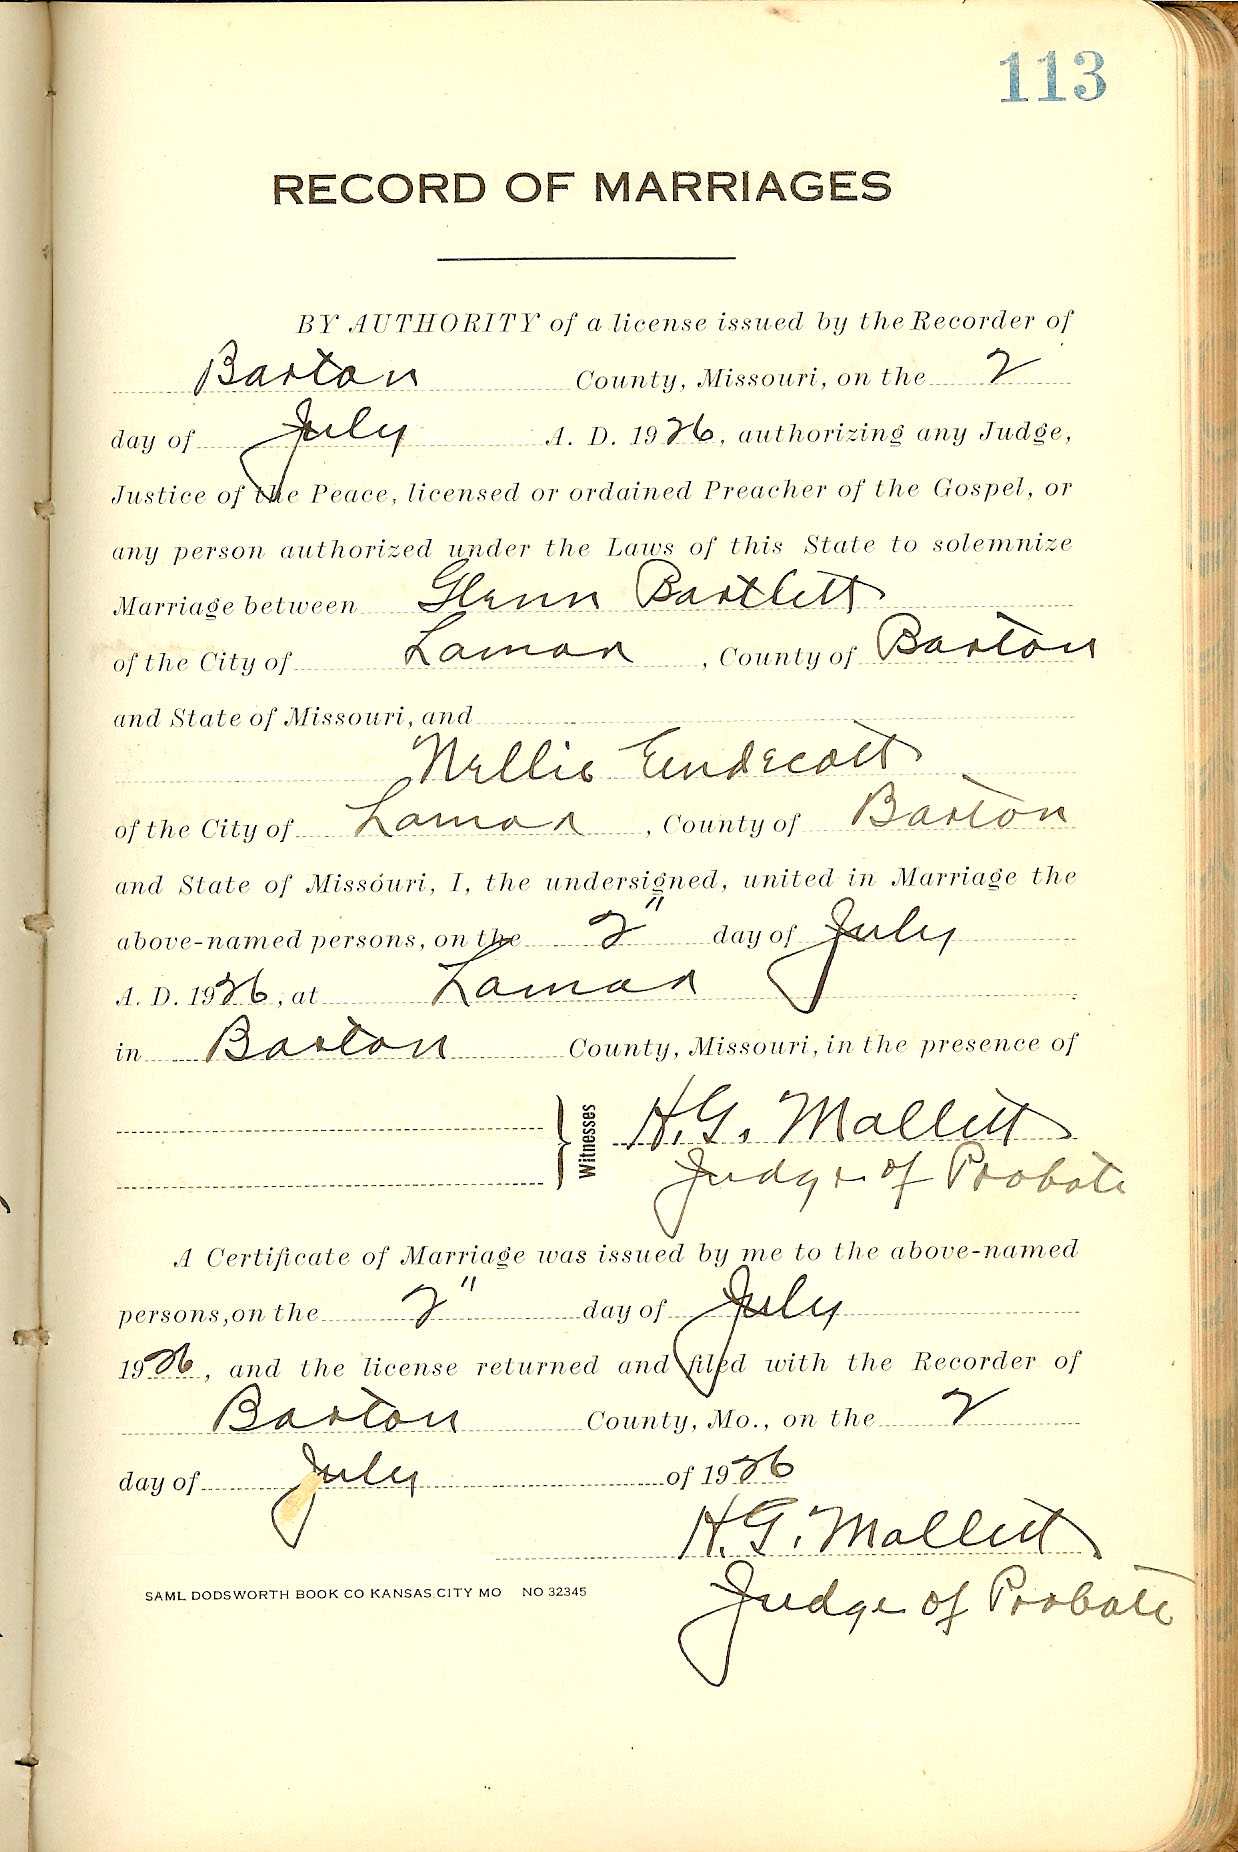 113
RECORD OF MARRIAGES
BY AUTHORITY of a license issued by the Recorder of
Barton County, Missouri, on the 2
day of July A. D. 1926, authorizing any Judge,
Justice of the Peace, licensed or ordained Preacher of the Gospel, or
any person authorized under the Laws of this State to solemnize
Marriage between Glenn Bartlett
of the City of Lamar, County of Barton
and State of Missouri, and
Nellie Endecott
of the City of Lamar, County of Barton
and State of Missouri, I, the undersigned, united in Marriage the
above-named persons, on the 2" day of July
A. D. 1926, at Lamar
in Barton County, Missouri, in the presence of
Witnesses H.G. Mallett
Judge of Probate
A Certificate of Marriage was issued by me to the above-named
persons, on the 2" day of July
1926, and the license returned and filed with the Recorder of
Barton County, Mo., on the 2
day of July of 1926
H.G. Mallett
SAML DODSWORTH BOOK CO KANSAS CITY MO NO 32345
Judge of Probate